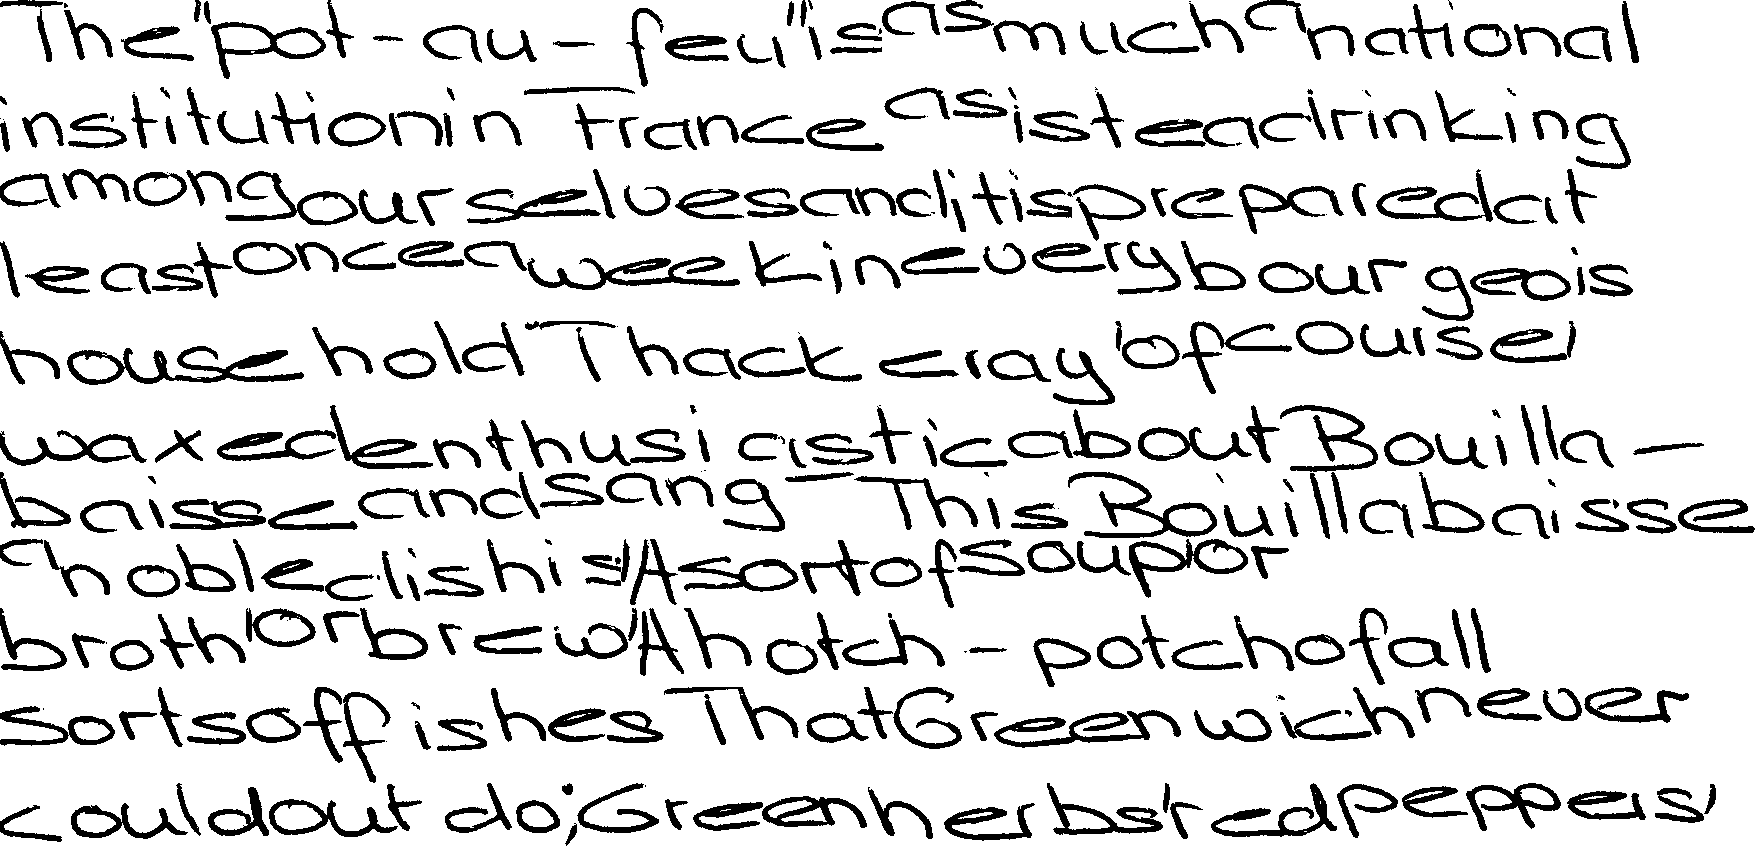 The "pot-au-feu" is as much a national
institution in France as is tea drinking
among ourselves and it is prepared at
least once a week in every bourgeois
household Thackeray, of course,
waxed enthusiastic about Bouilla-
baisse and sang This Bouillabaisse
a noble dish is, A sort of soup, or
broth, or brew, A hotch-potch of all
sorts of fishes That Greenwich never
could outdo; Green herbs, red peppers,